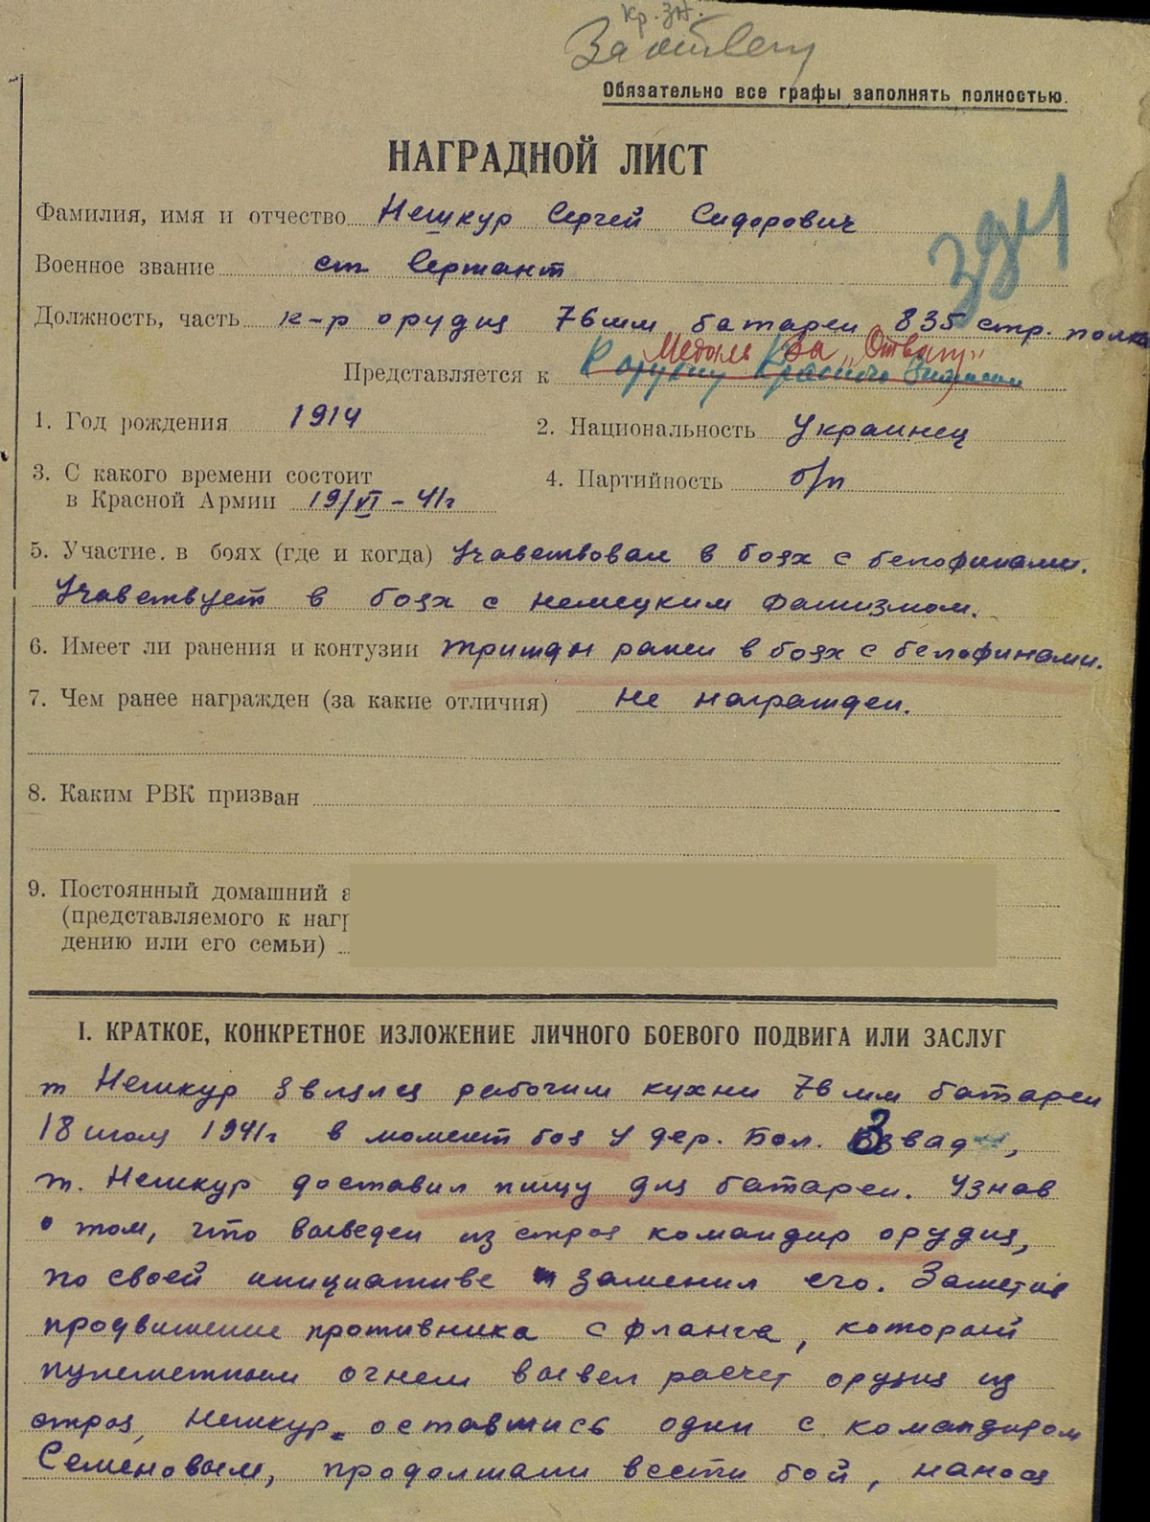 Кр. Зн.
За отвагу
Обязательно все графы заполнять полностью.
НАГРАДНОЙ ЛИСТ
Фамилия, имя и отчество Нешкур Сергей Сидорович
Военное звание ст. Сержант
Должность, часть к-р орудия 76 мм батареи 835 стр. полка
Медаль За „Отвагу”
Представляется к К ордену Красного Знамени
1. Год рождения 1914
2. Национальность Украинец
3. С какого времени состоит
в Красной Армии 19/VI – 41 г
4. Партийность б/п
5. Участие в боях (где и когда) Учавствовал в боях с белофинами.
Учавствует в боях с немецким фашизмом.
6. Имеет ли ранения и контузии трижды ранен в боях с белофинами.
7. Чем ранее награжден (за какие отличия) не награжден.
8. Каким РВК призван
9. Постоянный домашний а
(представляемого к наг
дению или его семьи)
I. КРАТКОЕ, КОНКРЕТНОЕ ИЗЛОЖЕНИЕ ЛИЧНОГО БОЕВОГО ПОДВИГА ИЛИ ЗАСЛУГ
т Нешкур являлся рабочим кухни 76 мм батареи
18 июля 1941 г. в момент боя у дер. Бол.
т. Нешкур доставил пищу для батареи. Узнав
о том, что выведен из строя командир орудия,
по своей инициативе заменил его. Заметив
продвижение противника с фланга, который
пулеметным огнем вывел расчет орудия из
строя, Нешкур оставшись один с командиром
Семеновым, продолжали вести бой, нанося